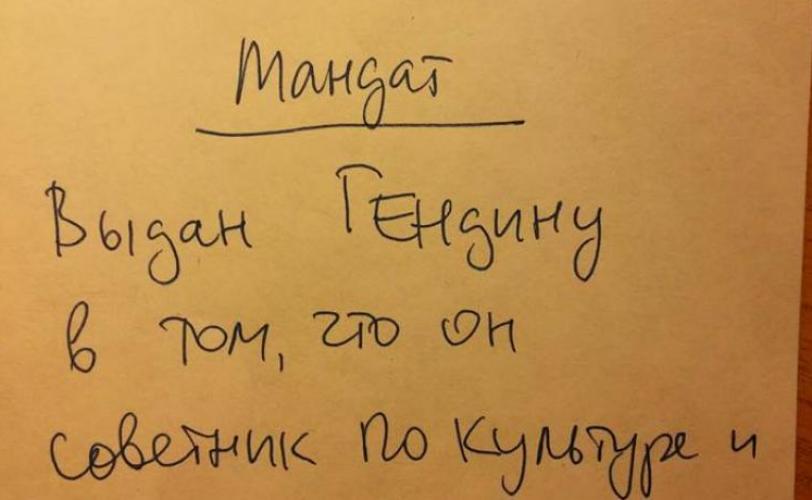 Мандат
Выдан Гендину
в том, что он
советник по культуре и